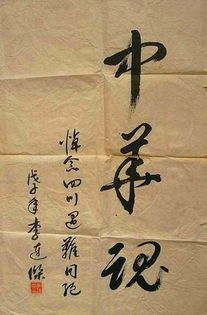 中華魂
悼念四川遇難同胞
戊子年李连傑